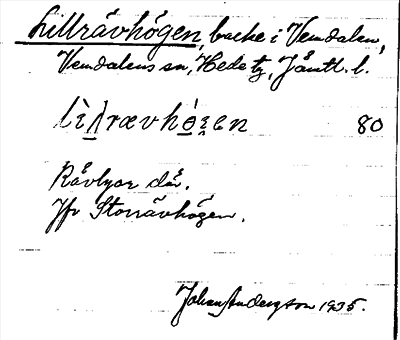 Lillrävhögen, backe i Vemdalen,
Vemdalens sn, Hede tg, Jämtl. l.
lìlrævhögen 80
Rävlyor där.
Jfr Storrävhögen.
Johan Andersson 1935.